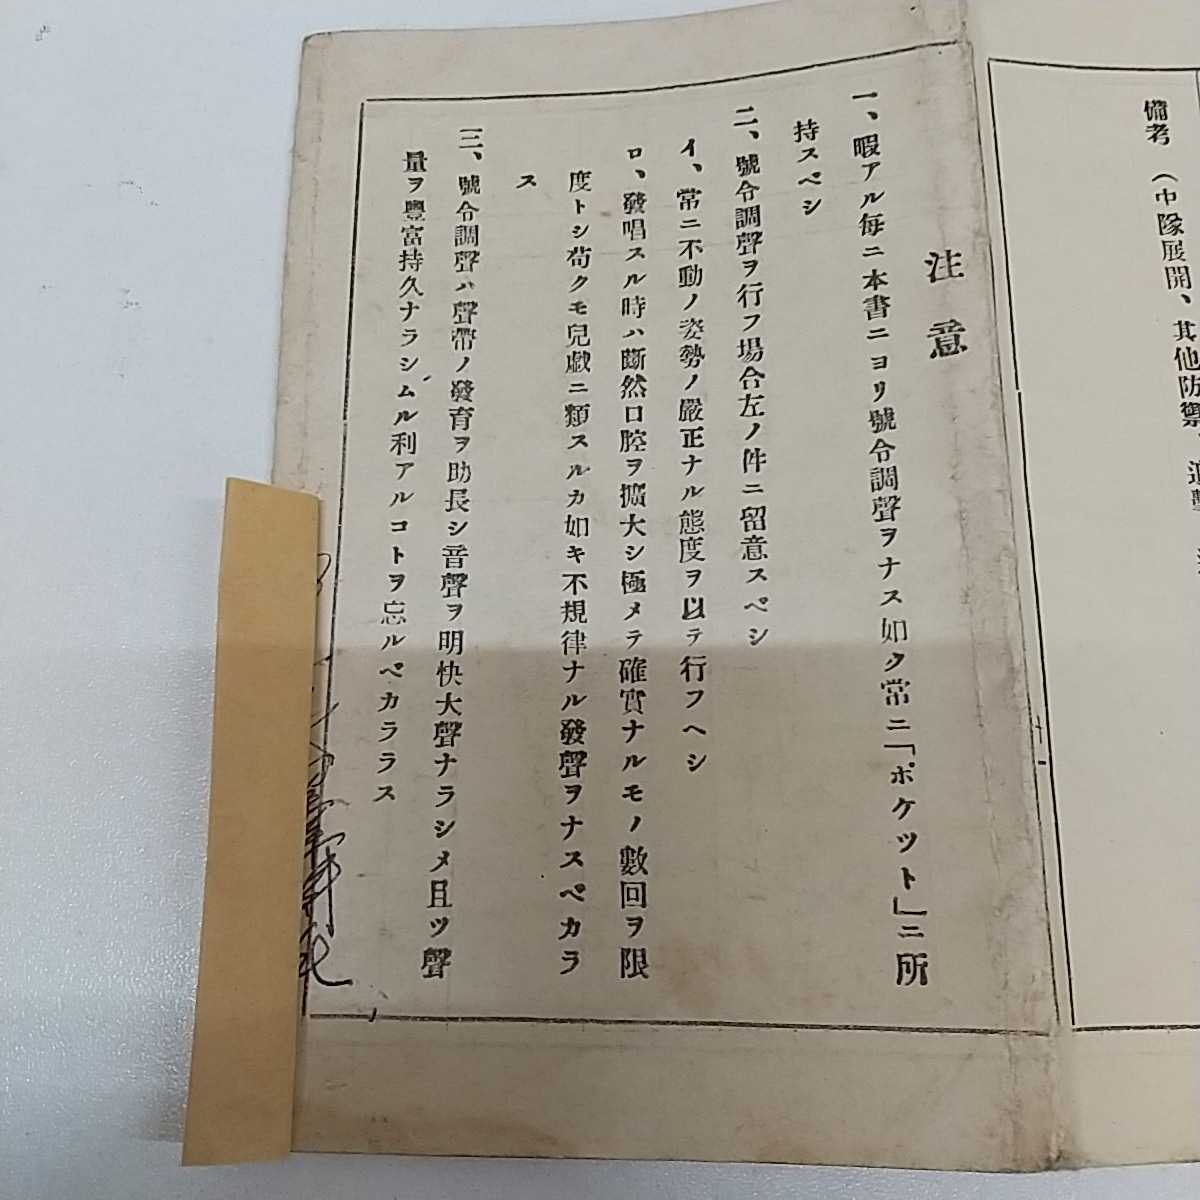 備考 (中隊展開、其他防禦
注意
一、暇アル毎ニ本書ニヨリ號令調聲ヲナス如ク常ニ「ポケット」ニ所
持スベシ
二、號令調聲ヲ行フ場合左ノ件ニ留意スベシ
イ、常ニ不動ノ姿勢ノ嚴正ナル態度ヲ以テ行フヘシ
ロ、發唱スル時ハ斷然口腔ヲ擴大シ極メテ確實ナルモノ數回ヲ限
度トシ苟クモ兒戯ニ類スルカ如キ不規律ナル發聲ヲナスベカラ
ス
三、號令調聲ハ聲帶ノ發育ヲ助長シ音聲ヲ明快大聲ナラシメ且ツ聲
量ヲ豐富持久ナラシムル利アルコトヲ忘ルベカララス